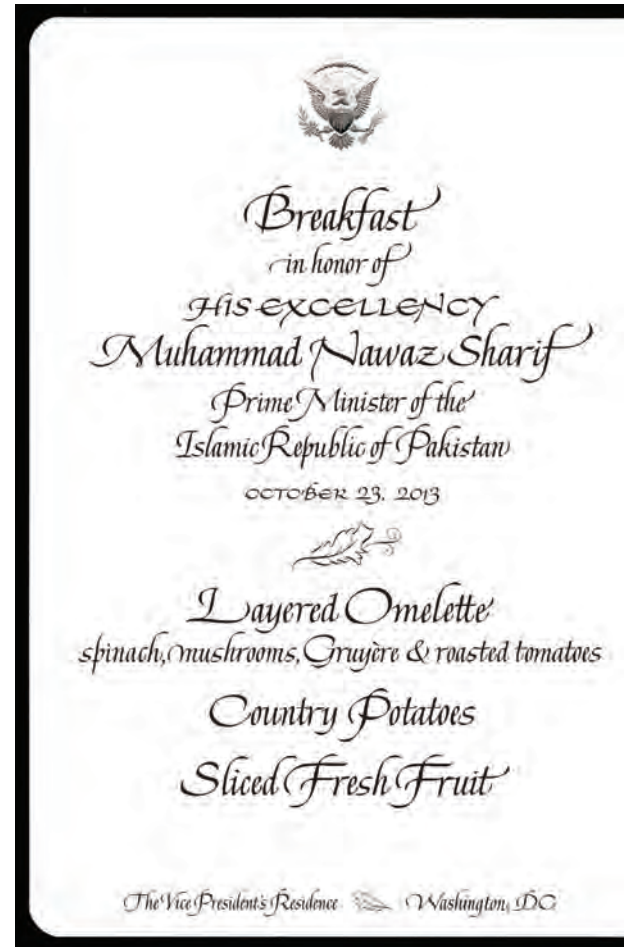 Breakfast
in honor of
HIS EXCELLENCY
Muhammad Nawaz Sharif
Prime Minister of the
Islamic Republic of Pakistan
OCTOBER 23, 2013
Layered Omelette
spinach, mushrooms, Gruyère & roasted tomatoes
Country Potatoes
Sliced Fresh Fruit
The Vice President's Residence Washington, DC